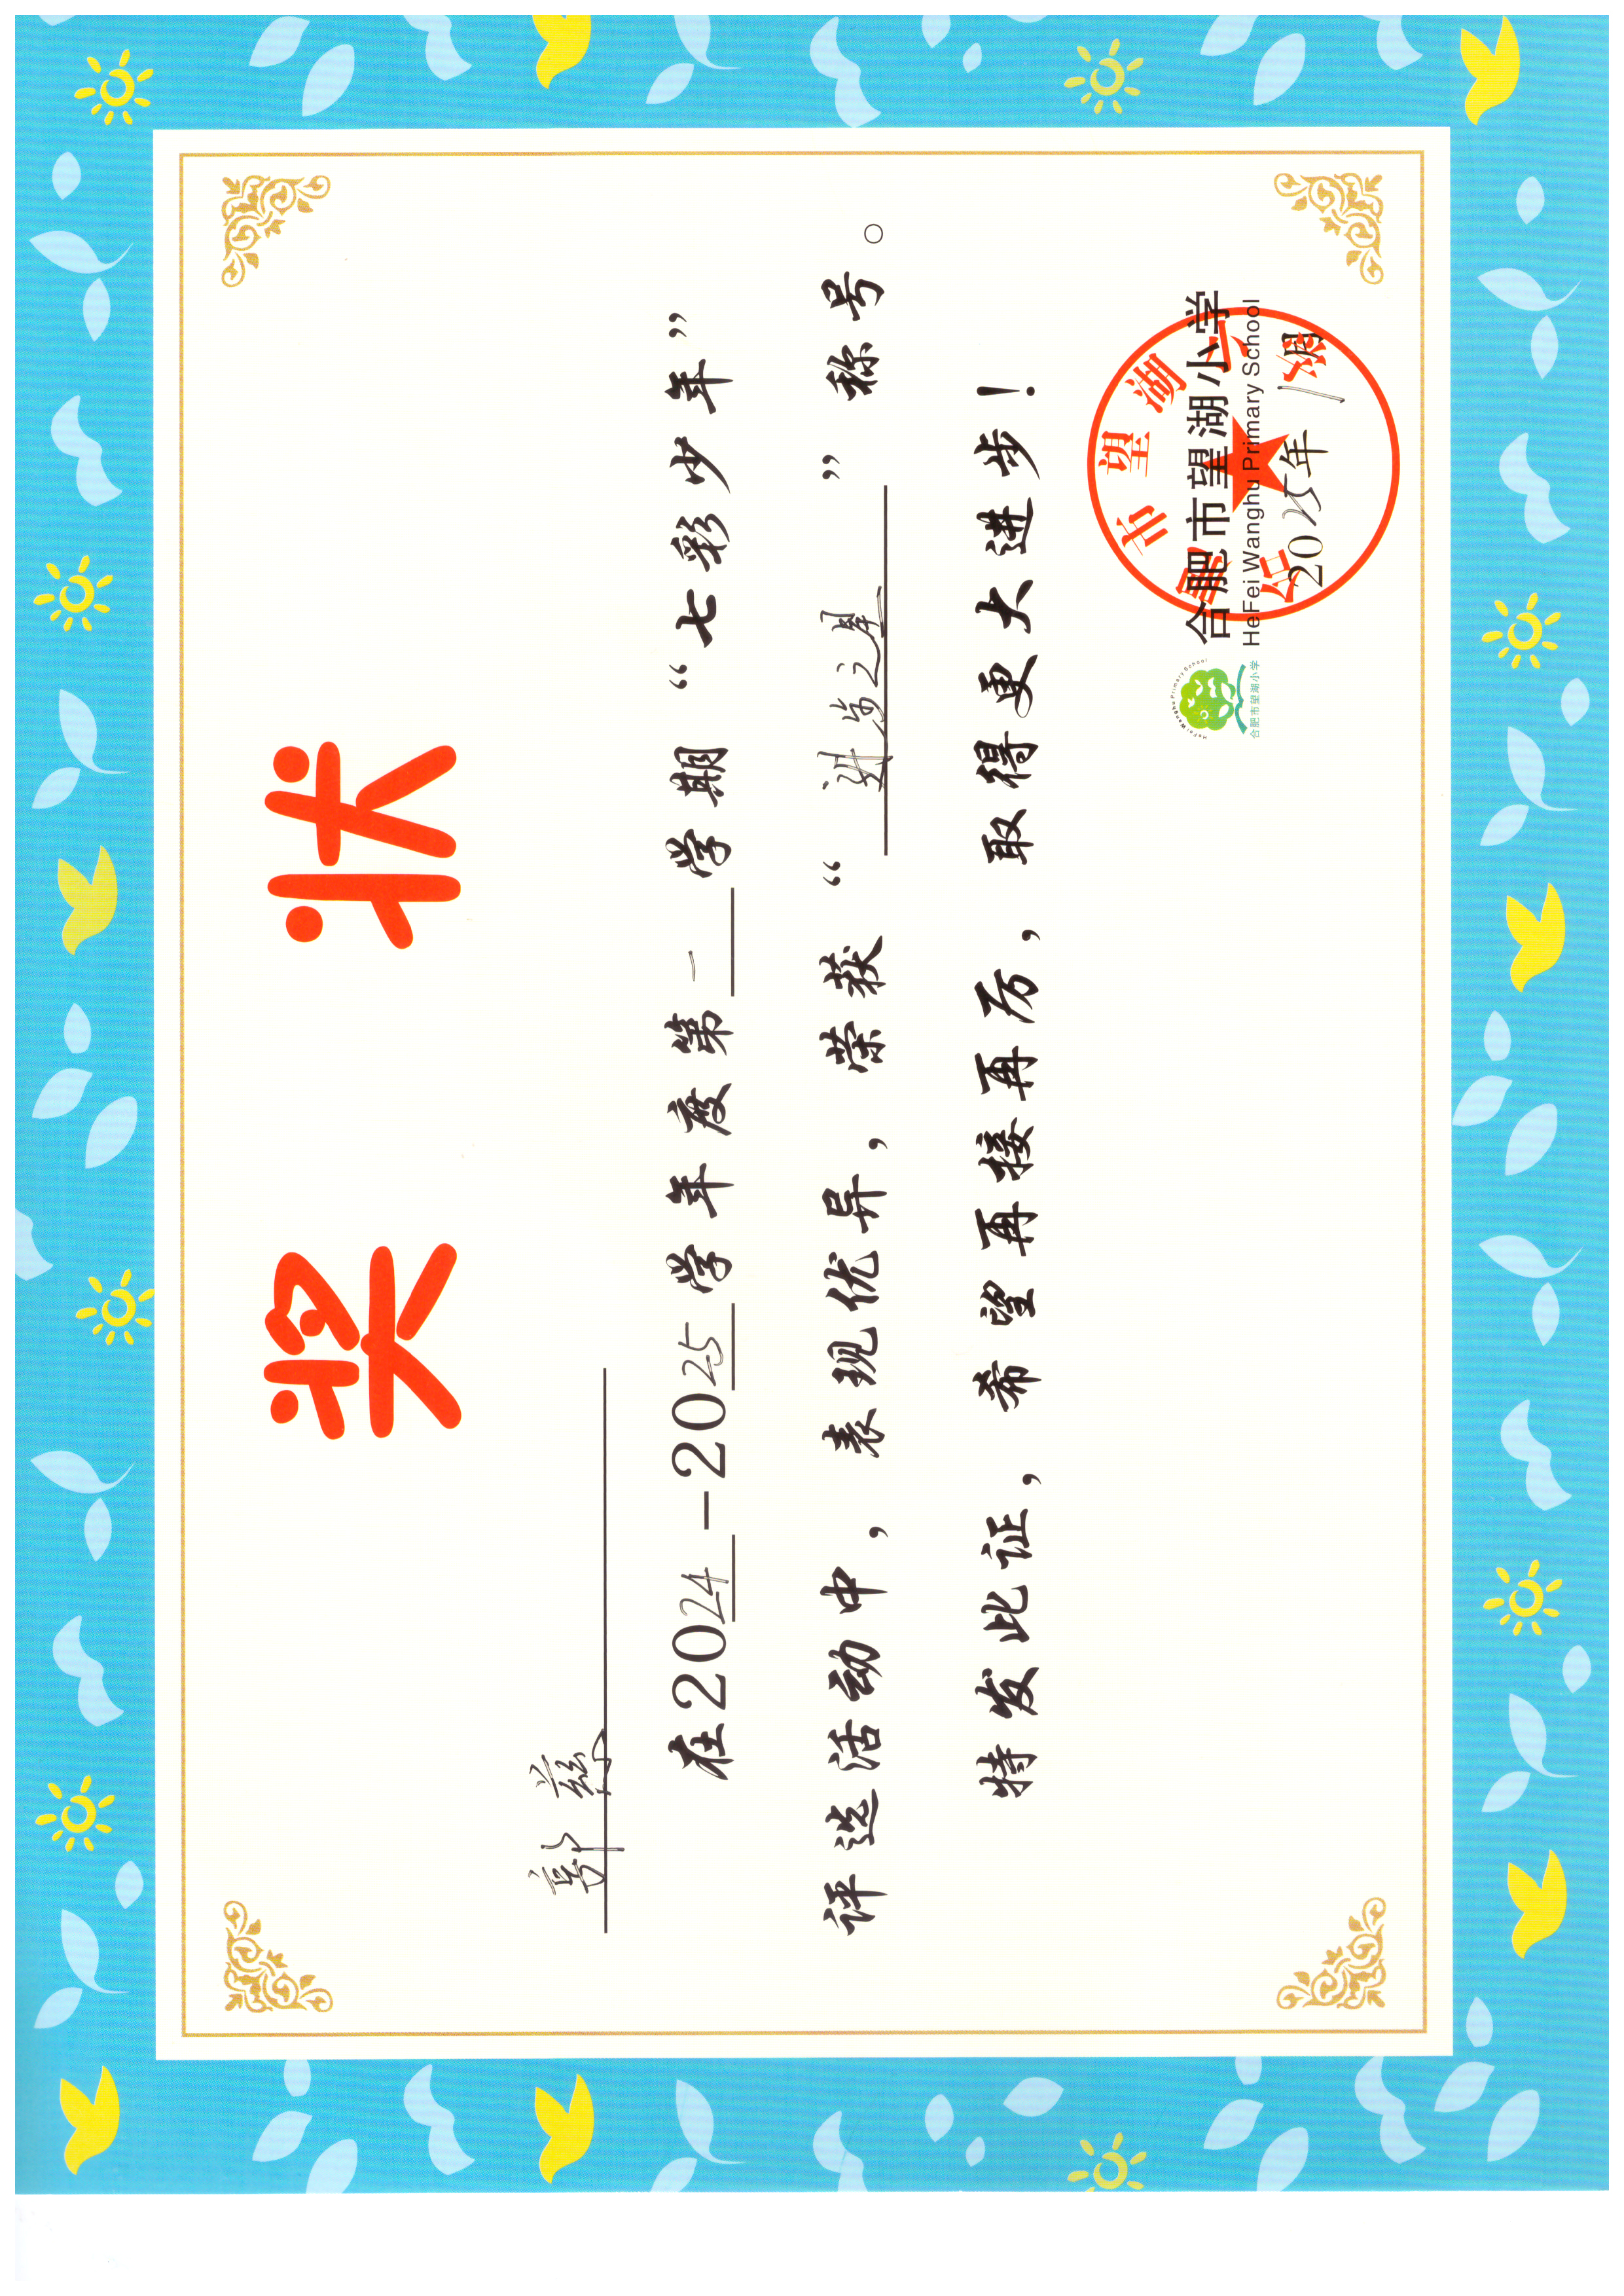 奖状
郭慈
在2024－2025学年度第一学期“七彩少年”
评选活动中，表现优异，荣获“进步之星”称号。
特发此证，希望再接再厉，取得更大进步！
HeFei Wanghu Primary School
合肥市望湖小学
合肥市望湖小学
HeFei Wanghu Primary School
2025年1月
合肥市望湖小学